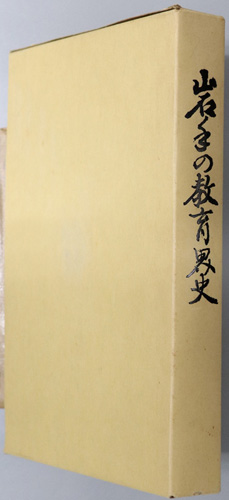 岩手の教育界史